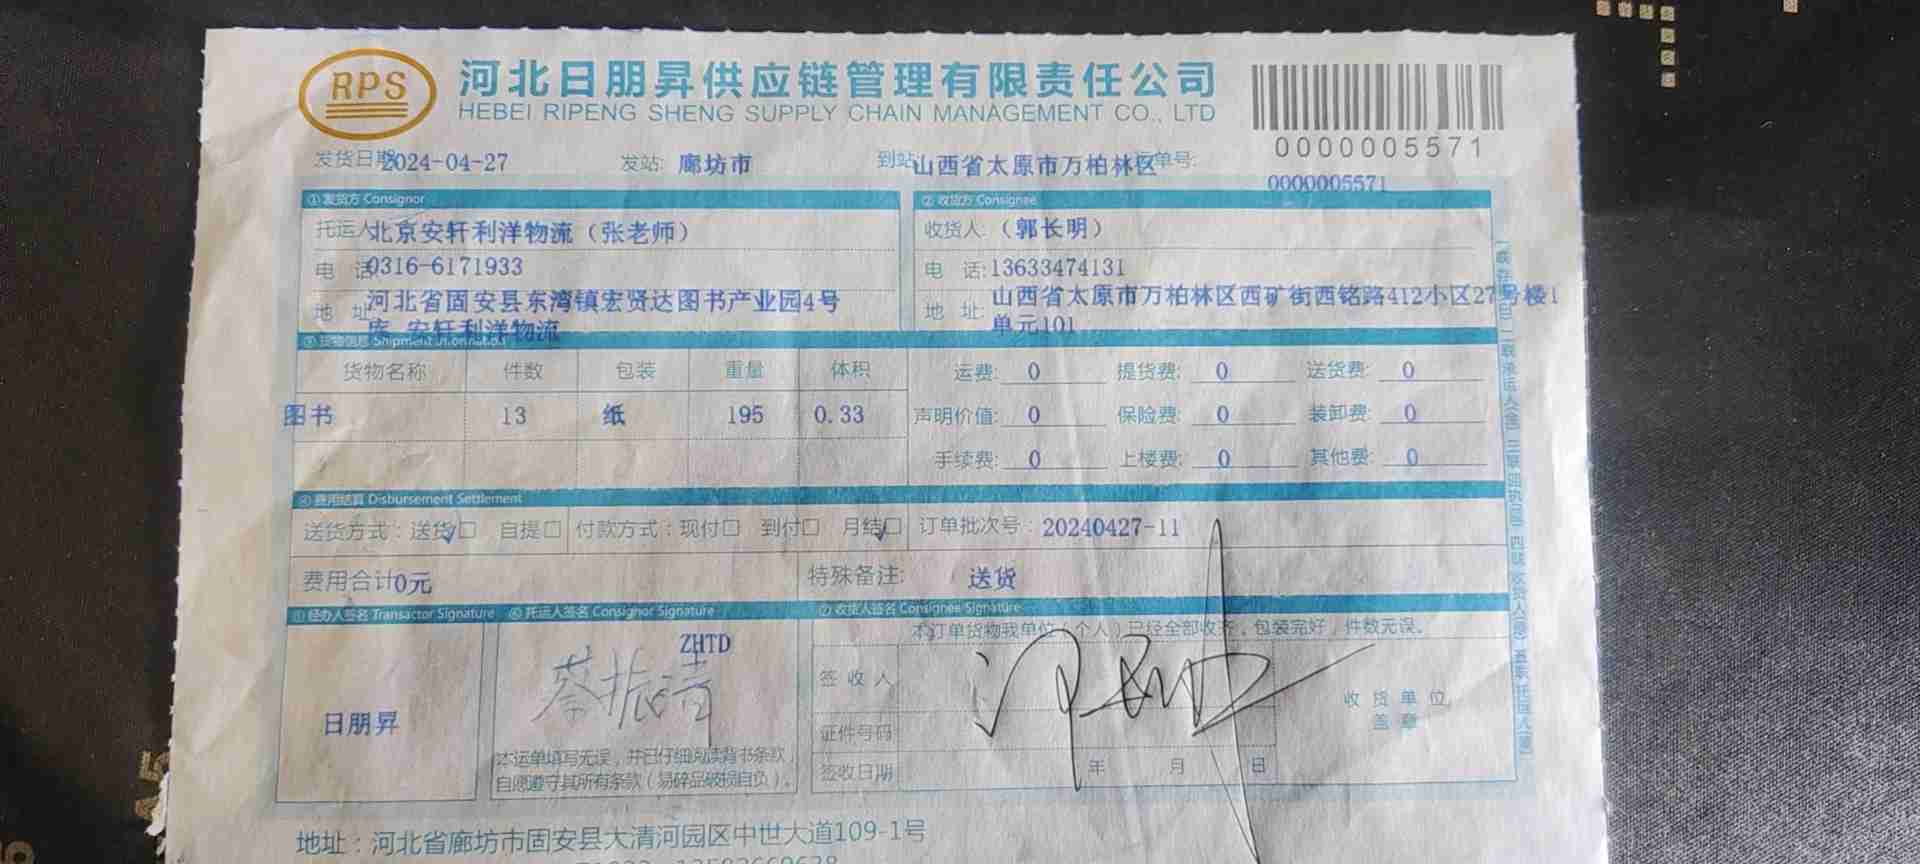 RPS
河北日朋昇供应链管理有限责任公司
HEBEI RIPENG SHENG SUPPLY CHAIN MANAGEMENT CO., LTD
0000005571
发货日期 2024-04-27 发站: 廊坊市 到站 山西省太原市万柏林区 单号:
0000005571
①发货方 Consignor ②收货方 Consignee
托运人 北京安轩利洋物流（张老师） 收货人:（郭长明）
电 话 0316-6171933 电 话:13633474131
地 址 河北省固安县东湾镇宏贤达图书产业园4号 地 址: 山西省太原市万柏林区西矿街西铭路412小区27号楼1
库 安轩利洋物流 单元101
③货物信息 Shipment Information
货物名称 件数 包装 重量 体积 运费: 0 提货费: 0 送货费: 0
图书 13 纸 195 0.33 声明价值: 0 保险费: 0 装卸费: 0
手续费: 0 上楼费: 0 其他费: 0
④费用结算 Disbursement Settlement
送货方式：送货☑ 自提□ 付款方式：现付□ 到付□ 月结☑ 订单批次号：20240427-11
费用合计 0元 特殊备注: 送货
⑤经办人签名 Transactor Signature ⑥托运人签名 Consignor Signature ⑦收货人签名 Consignee Signature
本订单货物我单位（个人）已经全部收齐，包装完好，件数无误。
ZHTD
蔡振清
签 收 人
收 货 单 位
盖 章
日朋昇
证件号码
本运单填写无误，并已仔细阅读背书条款，
自愿遵守其所有条款（易碎品破损自负）。
签收日期 年 月 日
地址：河北省廊坊市固安县大清河园区中世大道109-1号